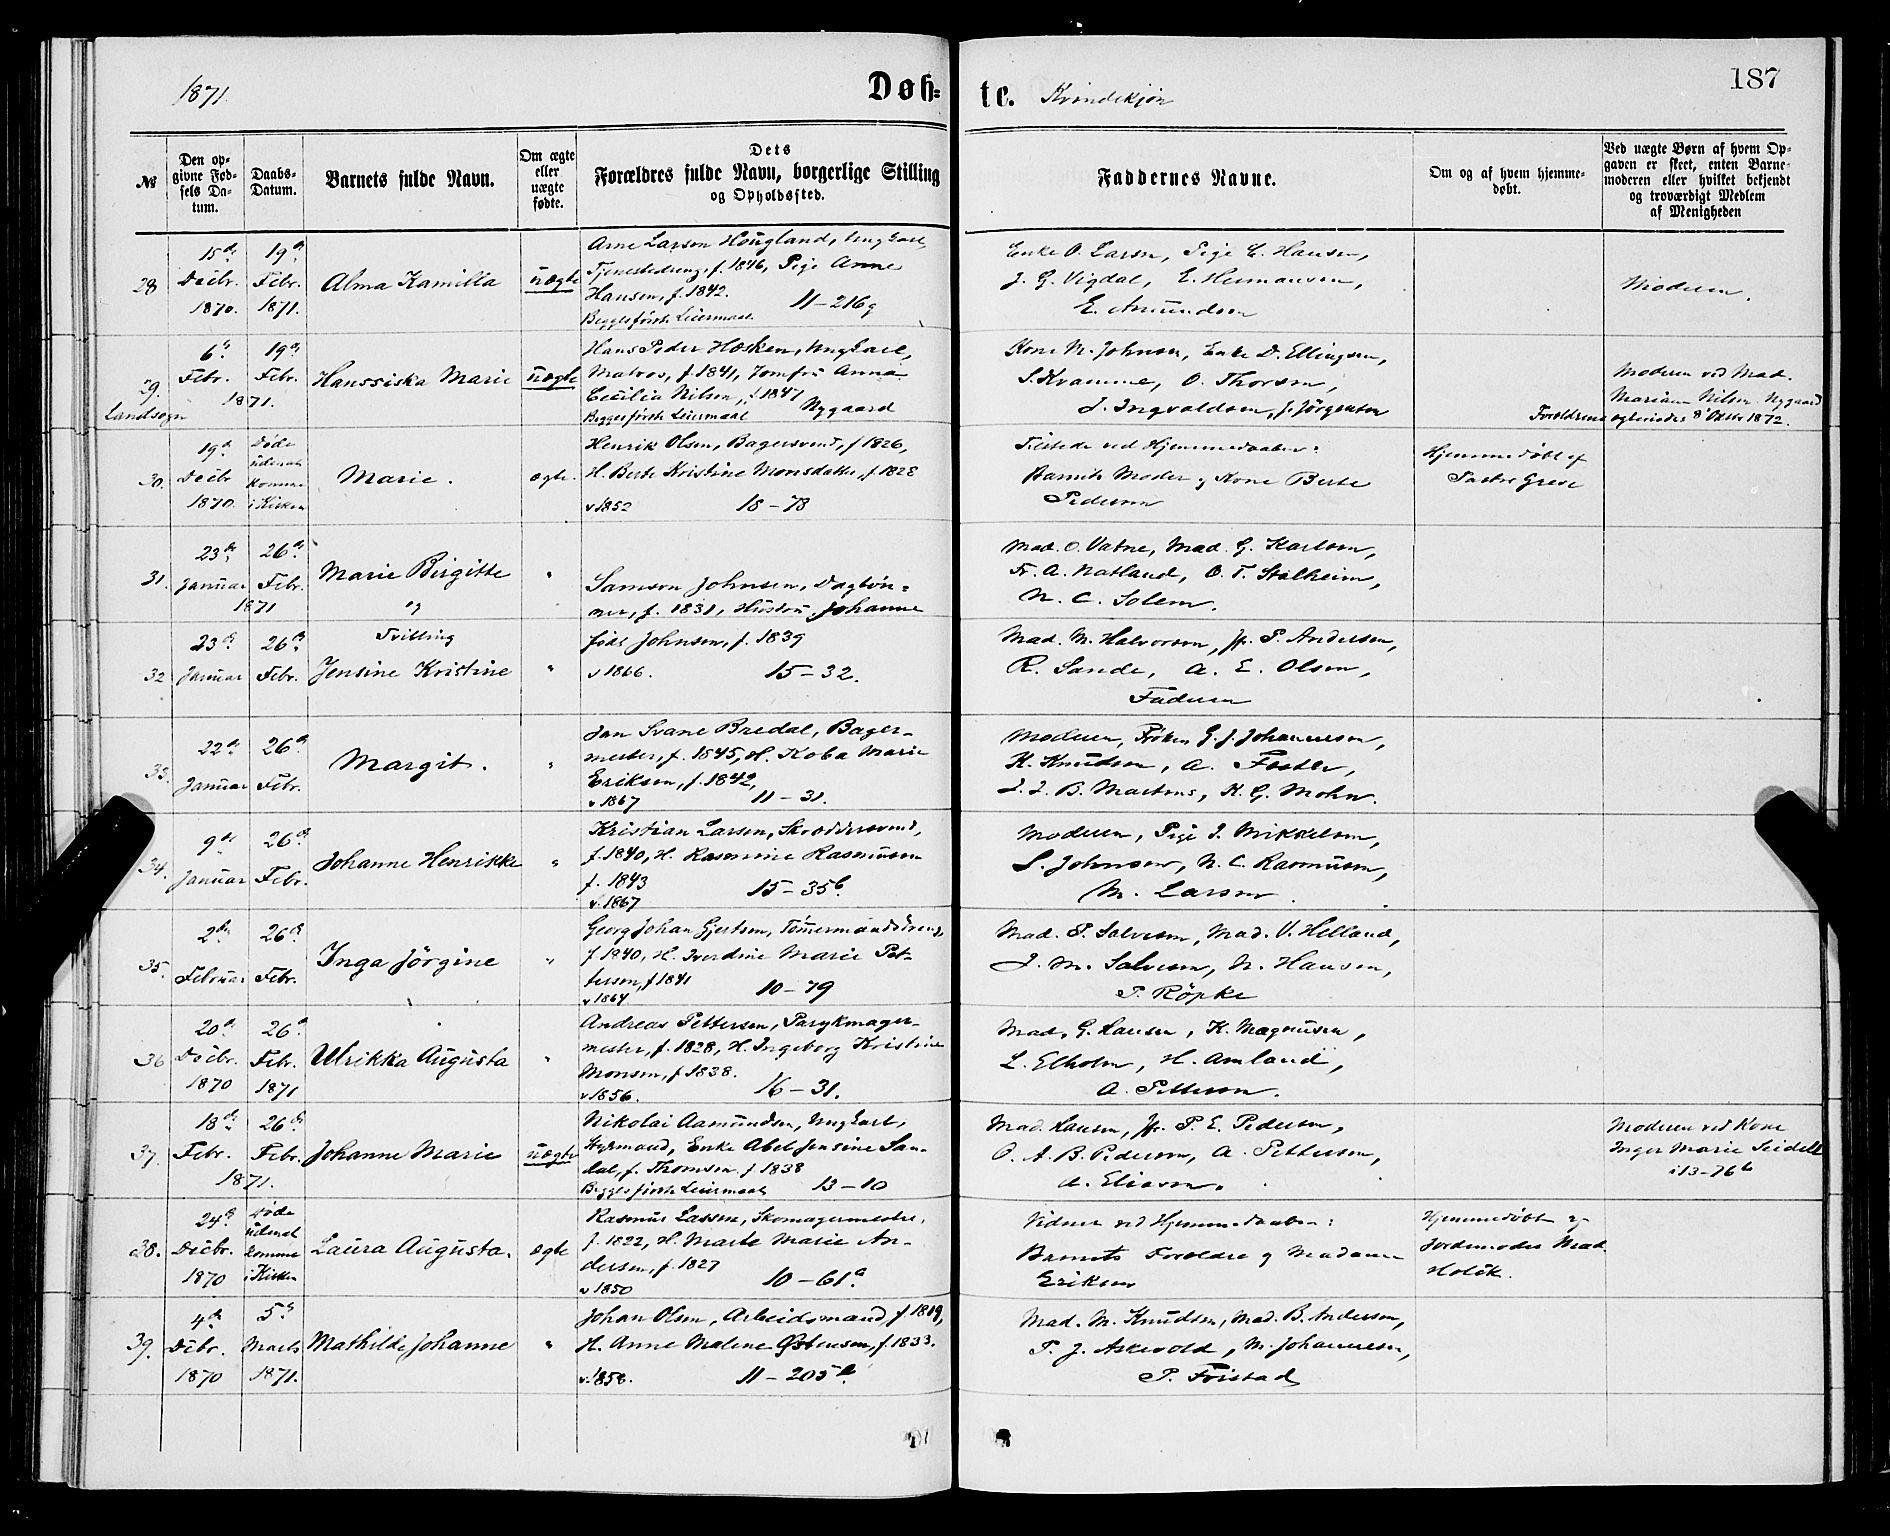 1871.
Døb=
te. Kvindekjøn
187
№
Den op=
givne Fød=
sels Da=
tum.
Daabs=
Datum.
Barnets fulde Navn.
Om ægte
eller
uægte
fødte.
Dets
Forældres fulde Navn, borgerlige Stilling
og Opholdssted.
Faddernes Navne.
Om og af hvem hjemme=
døbt.
Ved uægte Børn af hvem Op=
gaven er skeet, enten Barne=
moderen eller hvilket bekjendt
og troværdigt Medlem
af Menigheden
28
15de
Decbr.
1870.
19de
Febr.
1871.
Alma Kamilla
uægte
Arne Larson Hougland, Ungkarl,
Tjenestedreng, f. 1846, Pige Anne
Hansen, f. 1842.
Begges første Leiermaal 11–216g
Enke O. Larsen, Pige E. Hansen,
J. G. Vigdal, E. Hermansen,
E. Amundsen
Moderen.
29.
Landsogn
6te
Febr.
19de
Febr.
1871.
Hanssiska Marie
uægte
Hans Peder Hosken, Ungkarl,
Matros, f. 1841, Jomfru Anna
Cecilia Nilsen, f. 1847
Begges første Leiermaal Nygaard
Kone N. Johnsen, Enke D. Ellingsen,
S. Kvamme, O. Thorsen,
J. Ingvaldsen, J. Jörgensen
Moderen ved Mad.
Mariane Nilsen Nygaard
Forældrene egteviedes 8de Oktbr 1872.
30.
19de
Decbr
1870.
Døde
uden at
komme
i Kirken
Marie.
ægte.
Henrik Olsen, Bagersvend, f 1826,
H. Berte Kristine Monsdatter, f. 1828
v 1852 18–78
Tilstede ved Hjemmedaaben:
Barnets Moder og Kone Berte
Pedersen
Hjemmedöbt af
Pastor Greve
31.
23de
Januar
26de
Febr.
1871
Marie Birgitte
og
"
Samson Johnsen, Daglön=
ner, f. 1831, Hustru Johanne
Mad. O. Vatne, Mad. G. Karlsen,
Fr. A. Natland, O. T. Stalheim,
N. C. Solem.
32
23de
Januar
26de
Febr.
Tvilling
Jensine Kristine
"
född Johnsen, f. 1839
v 1866. 15–32.
Mad. M. Halvorsen, Jfr. P. Andersen,
R. Sande, A. E. Olsen,
Faderen
33.
22de
Januar
26de
Febr.
Margit.
"
Jan Svane Bredal, Bager=
mester, f. 1845, H. Koba Marie
Eriksen, f. 1842,
v 1867 11–31.
Moderen, Fröken G. J. Johannesen,
K. Knudsen, A. Foster,
J. J. B. Martens, K. G. Mohn.
34.
9de
Januar
26de
Febr.
Johanne Henrikke
"
Kristian Larsen, Skræddersvend,
f. 1840, H. Rasmine Rasmusen
f. 1843
v. 1867 15–35b.
Moderen, Pige J. Mikkelsen,
S. Johnsen, N. C. Rasmusen,
M. Larsen.
35.
2den
Februar
26de
Febr.
Inga Jörgine
"
Georg Johan Gjertsen, Tömmermandsdreng,
f. 1840, H. Iverdine Marie Pet=
tersen, f 1841
v 1864 10–79
Mad. S. Salvesen, Mad. V. Helland,
J. M. Salvesen, N. Hansen,
P. Röpke
36
20de
Decbr.
1870
26de
Febr.
1871
Ulrikka Augusta
"
Andreas Pettersen, Parykmager=
mester, f. 1828, H. Ingeborg Kristine
Monsen, f 1838.
v 1856. 16–31.
Mad. G. Hansen, K. Magnusen,
L. Elholm, H. Amland,
A. Pettersen.
37.
18de
Febr.
26de
Febr.
1871.
Johanne Marie
uægte
Nikolai Aamundsen, Ungkarl,
Styrmand, Enke Abel Jensine San=
dal, f. Thomsen f 1838
Begges første Leiermaal 13–10
Mad. Hansen, Jfr. P. E. Pedersen,
O. A. B. Pedersen, A. Pettersen,
A. Eliasen.
Moderen ved Kone
Inger Marie Seidell
i 13–76b
38.
24de
Decbr.
1870
Døde
uden at
komme
i Kirken
Laura Augusta.
ægte
Rasmus Lassen, Skomagermester,
f. 1822, H. Marte Marie An=
dersen, f. 1827
v 1850 10–61a.
Vidner ved Hjemmedaaben:
Barnets Forældre og Madame
Eriksen
Hjemmedöbt af
Jordemoder Mad.
Holck.
39.
4de
Decbr.
1870
5te
Marts
1871.
Mathilde Johanne
"
Johan Olsen, Arbeidsmand f 1819,
H. Anne Malene Østensen, f. 1833.
v. 1858. 11–205b.
Mad. M. Knudsen, Mad. B. Andersen,
T. J. Askevold, M. Johannesen,
P. Fristad